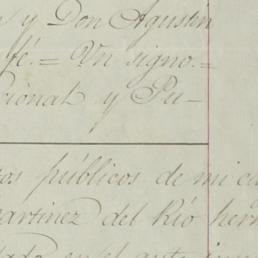 y Don Agustin
fé. = Un signo. =
cional y Pu-
tos públicos de mi ca
Martinez del Río her